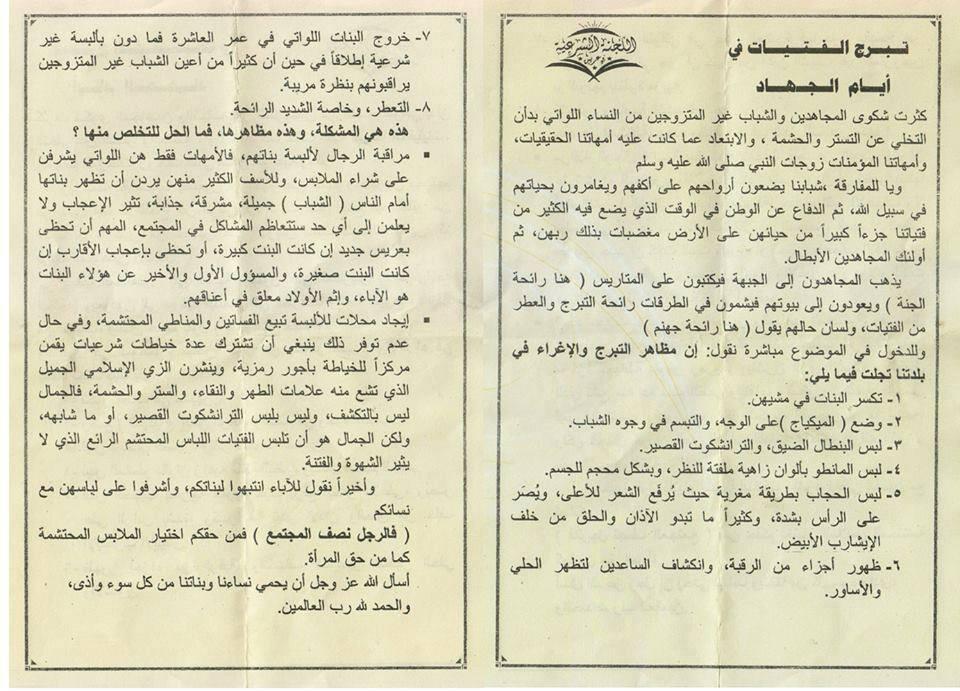 تبرج الفتيات في
أيام الجهاد
اللجنة الشرعية
كثرت شكوى المجاهدين والشباب غير المتزوجين من النساء اللواتي بدأن
التخلي عن التستر والحشمة ، والابتعاد عما كانت عليه أمهاتنا الحقيقيات،
وأمهاتنا المؤمنات زوجات النبي صلى الله عليه وسلم
ويا للمفارقة ،شبابنا يضعون أرواحهم على أكفهم ويغامرون بحياتهم
في سبيل الله، ثم الدفاع عن الوطن في الوقت الذي يضع فيه الكثير من
فتياتنا جزءاً كبيراً من حيائهن على الأرض مغضبات بذلك ربهن، ثم
أولئك المجاهدين الأبطال.
يذهب المجاهدون إلى الجبهة فيكتبون على المتاريس ( هنا رائحة
الجنة ) ويعودون إلى بيوتهم فيشمون في الطرقات رائحة التبرج والعطر
من الفتيات، ولسان حالهم يقول ( هنا رائحة جهنم )
وللدخول في الموضوع مباشرة نقول: إن مظاهر التبرج والإغراء في
بلدتنا تجلت فيما يلي:
١- تكسر البنات في مشيهن.
٢- وضع ( الميكياج )على الوجه، والتبسم في وجوه الشباب.
٣- لبس البنطال الضيق، والترانشكوت القصير.
٤- لبس المانطو بألوان زاهية ملفتة للنظر، وبشكل محجم للجسم.
٥- لبس الحجاب بطريقة مغرية حيث يُرفَع الشعر للأعلى، ويُصَر
على الرأس بشدة، وكثيراً ما تبدو الآذان والحلق من خلف
الإيشارب الأبيض.
٦- ظهور أجزاء من الرقبة، وانكشاف الساعدين لتظهر الحلي
والأساور.
٧- خروج البنات اللواتي في عمر العاشرة فما دون بألبسة غير
شرعية إطلاقاً في حين أن كثيراً من أعين الشباب غير المتزوجين
يراقبونهم بنظرة مريبة.
٨- التعطر، وخاصة الشديد الرائحة.
هذه هي المشكلة، وهذه مظاهرها، فما الحل للتخلص منها ؟
▪ مراقبة الرجال لألبسة بناتهم، فالأمهات فقط هن اللواتي يشرفن
على شراء الملابس، وللأسف الكثير منهن يردن أن تظهر بناتها
أمام الناس ( الشباب ) جميلة، مشرقة، جذابة، تثير الإعجاب ولا
يعلمن إلى أي حد ستتعاظم المشاكل في المجتمع، المهم أن تحظى
بعريس جديد إن كانت البنت كبيرة، أو تحظى بإعجاب الأقارب إن
كانت البنت صغيرة، والمسؤول الأول والأخير عن هؤلاء البنات
هو الآباء، وإثم الأولاد معلق في أعناقهم.
▪ إيجاد محلات للألبسة تبيع الفساتين والمناطي المحتشمة، وفي حال
عدم توفر ذلك ينبغي أن تشترك عدة خياطات شرعيات يقمن
مركزاً للخياطة بأجور رمزية، وينشرن الزي الإسلامي الجميل
الذي تشع منه علامات الطهر والنقاء، والستر والحشمة، فالجمال
ليس بالتكشف، وليس بلبس الترانشكوت القصير، أو ما شابهه،
ولكن الجمال هو أن تلبس الفتيات اللباس المحتشم الرائع الذي لا
يثير الشهوة والفتنة.
وأخيراً نقول للآباء انتبهوا لبناتكم، وأشرفوا على لباسهن مع
نسائكم
( فالرجل نصف المجتمع ) فمن حقكم اختيار الملابس المحتشمة
كما من حق المرأة.
أسأل الله عز وجل أن يحمي نساءنا وبناتنا من كل سوء وأذى،
والحمد لله رب العالمين.